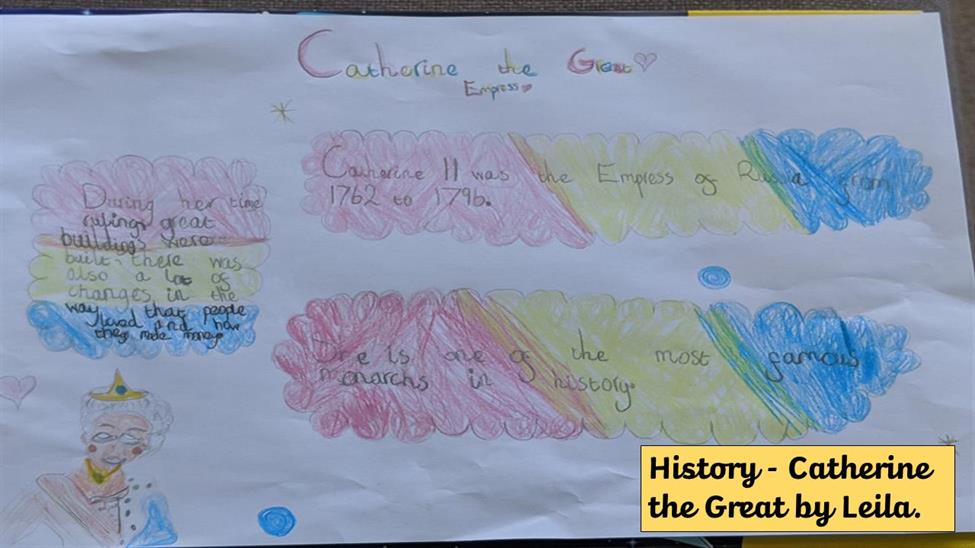 Catherine the Great
Empress
Catherine II was the Empress of Russia from
1762 to 1796.
During her time
ruling great
buildings were
built. there was
also a lot of
changes in the
way that people
lived and how
they made money
She is one of the most famous
monarchs in history.
History - Catherine
the Great by Leila.